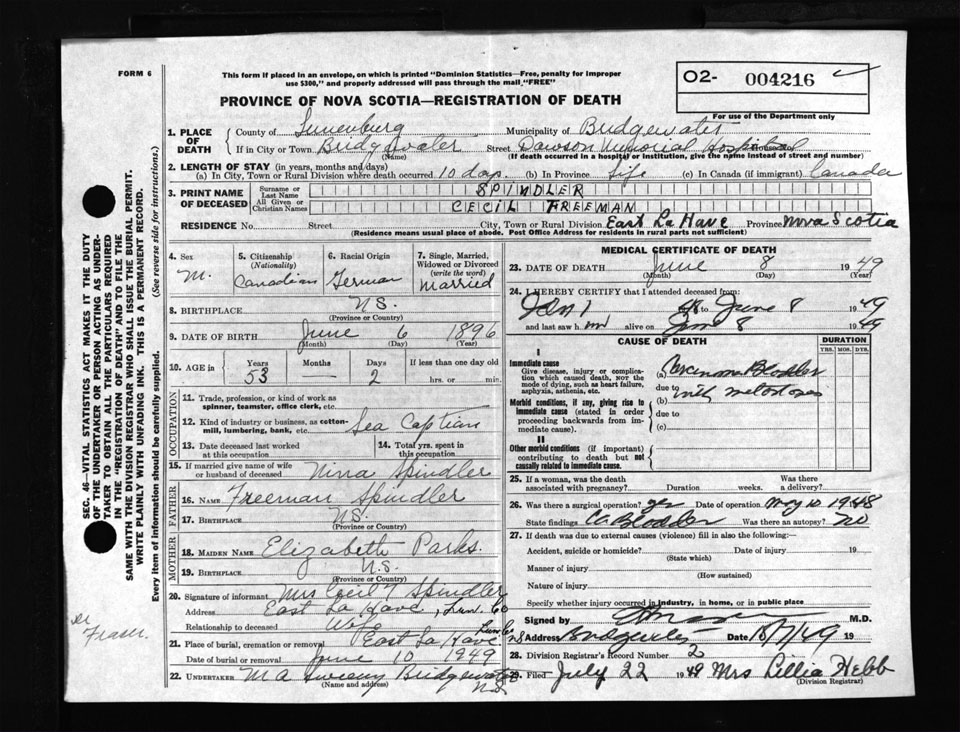 FORM 6
This form if placed in an envelope, on which is printed "Dominion Statistics—Free, penalty for improper
use $300," and properly addressed will pass through the mail "FREE"
O2- 004216
For use of the Department only
PROVINCE OF NOVA SCOTIA—REGISTRATION OF DEATH
1. PLACE OF DEATH { County of Lunenburg Municipality of Bridgewater
If in City or Town Bridgewater Street Dawson Memorial Hospital
(Name) (If death occurred in a hospital or institution, give the name instead of street and number)
2. LENGTH OF STAY (in years, months and days)
(a) In City, Town or Rural Division where death occurred 10 days. (b) In Province Life (c) In Canada (if immigrant) Canada
3. PRINT NAME OF DECEASED { Surname or Last Name SPINDLER
All Given or Christian Names CECIL FREEMAN
RESIDENCE No. Street City, Town or Rural Division East La Have Province Nova Scotia
(Residence means usual place of abode. Post Office Address for residents in rural parts not sufficient)
4. Sex M.
5. Citizenship (Nationality) Canadian
6. Racial Origin German
7. Single, Married, Widowed or Divorced (write the word) Married
8. BIRTHPLACE N.S.
(Province or Country)
9. DATE OF BIRTH June 6 1896
(Month) (Day) (Year)
10. AGE in { Years 53 Months Days 2 If less than one day old hrs. or min.
OCCUPATION
11. Trade, profession, or kind of work as spinner, teamster, office clerk, etc.
12. Kind of industry or business, as cotton-mill, lumbering, bank, etc. Sea Captian
13. Date deceased last worked at this occupation
14. Total yrs. spent in this occupation
15. If married give name of wife or husband of deceased Nina Spindler
FATHER
16. NAME Freeman Spindler
17. BIRTHPLACE N.S.
(Province or Country)
MOTHER
18. MAIDEN NAME Elizabeth Parks.
19. BIRTHPLACE N.S.
(Province or Country)
20. Signature of informant Mrs Cecil Spindler
Address East La Have, Lun. Co
Relationship to deceased Wife
21. Place of burial, cremation or removal East La Have
Date of burial or removal June 10 1949
22. UNDERTAKER M A Sweeny Bridgewater N.S.
(Name and address)
MEDICAL CERTIFICATE OF DEATH
23. DATE OF DEATH June 8 1949
(Month) (Day) (Year)
24. I HEREBY CERTIFY that I attended deceased from:
Jan 1 to June 8 1949
and last saw h im alive on June 8 1949
CAUSE OF DEATH
DURATION
YRS. MOS. DYS.
I
Immediate cause
Give disease, injury or complication which caused death, NOT the mode of dying, such as heart failure, asphyxia, asthenia, etc.
(a) Carcinoma Bladder
due to with metastases
Morbid conditions, if any, giving rise to immediate cause (stated in order proceeding backwards from immediate cause).
(b)
due to
(c)
II
Other morbid conditions (if important) contributing to death but not causally related to immediate cause.
25. If a woman, was the death associated with pregnancy? Duration weeks. Was there a delivery?
26. Was there a surgical operation? yes Date of operation May 10 1948
State findings Ca Bladder Was there an autopsy? no
27. If death was due to external causes (violence) fill in also the following:—
Accident, suicide or homicide? Date of injury 19
(State which)
Manner of injury
(How sustained)
Nature of injury
Specify whether injury occurred in industry, in home, or in public place
Signed by M.D.
Address Bridgewater Date 18/7/49 19
28. Division Registrar's Record Number 2
29. Filed July 22 1949 Mrs Lillia Hebb
(Division Registrar)
SEC. 46—VITAL STATISTICS ACT MAKES IT THE DUTY
OF THE UNDERTAKER OR PERSON ACTING AS UNDER-
TAKER TO OBTAIN ALL THE PARTICULARS REQUIRED
IN THE "REGISTRATION OF DEATH" AND TO FILE THE
SAME WITH THE DIVISION REGISTRAR WHO SHALL ISSUE THE BURIAL PERMIT.
WRITE PLAINLY WITH UNFADING INK. THIS IS A PERMANENT RECORD.
Every item of information should be carefully supplied. (See reverse side for instructions.)
Dr Fraser.